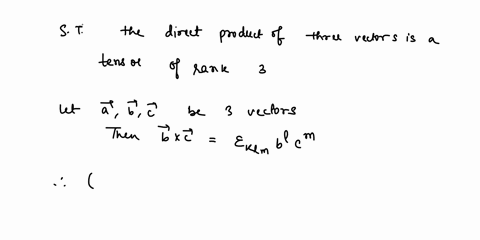 S.T. the direct product of three vectors is a
tensor of rank 3
Let a⃗, b⃗, c⃗ be 3 vectors
Then b⃗ × c⃗ = ε_{klm} b^l c^m
∴ (